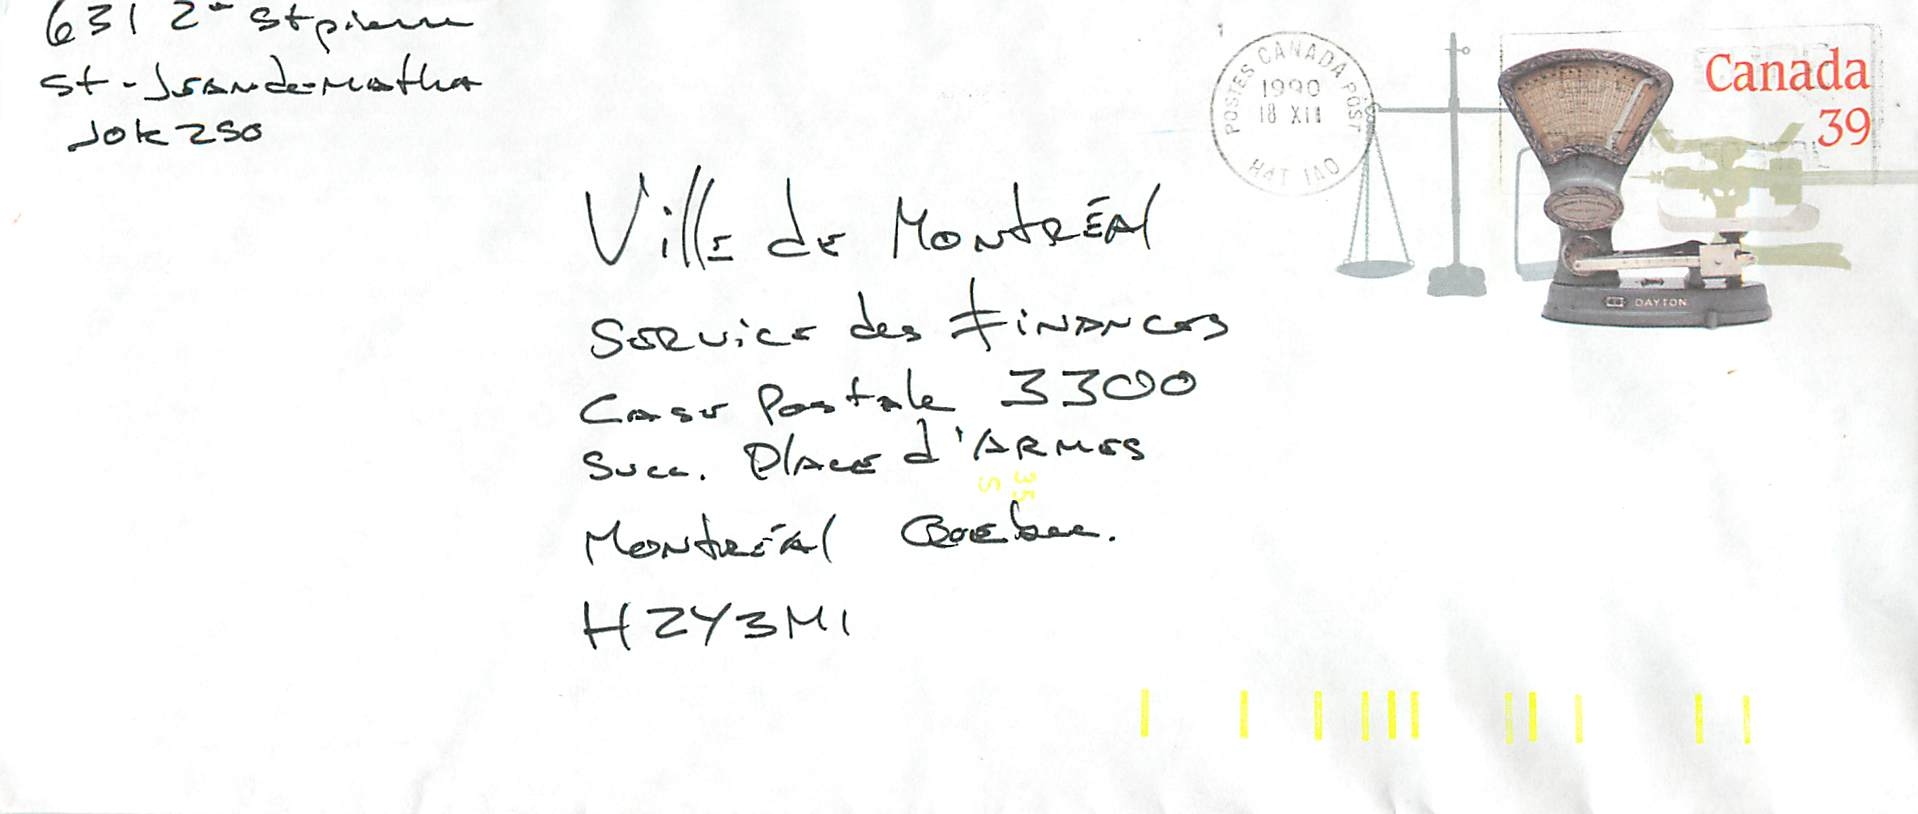 631 2e St pierre
St-Jean de-matha
JOK 2S0
POSTES CANADA POST
1990
18 XII
H4T 1A0
Canada
39
DAYTON
Ville de Montréal
Service des Finances
Case Postale 3300
Succ. Place d'Armes
35
S
Montréal Quebec.
H2Y3M1